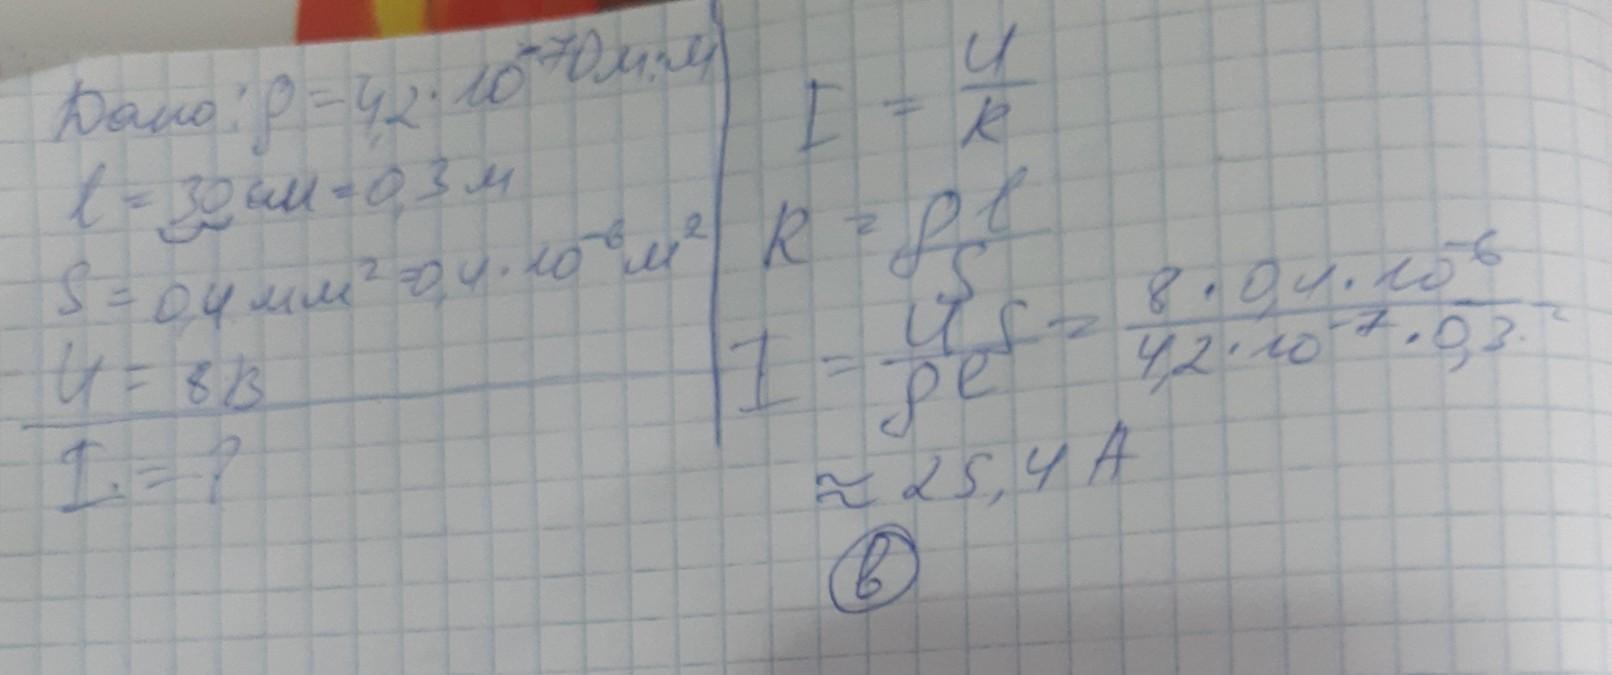 Дано: ρ = 4,2·10⁻⁷Ом·м
l = 30 см = 0,3 м
S = 0,4 мм² = 0,4·10⁻⁶ м²
U = 8В
I = ?
I = U/R
R = ρl/S
I = US/ρl = 8·0,4·10⁻⁶/4,2·10⁻⁷·0,3 =
≈ 25,4 А
в